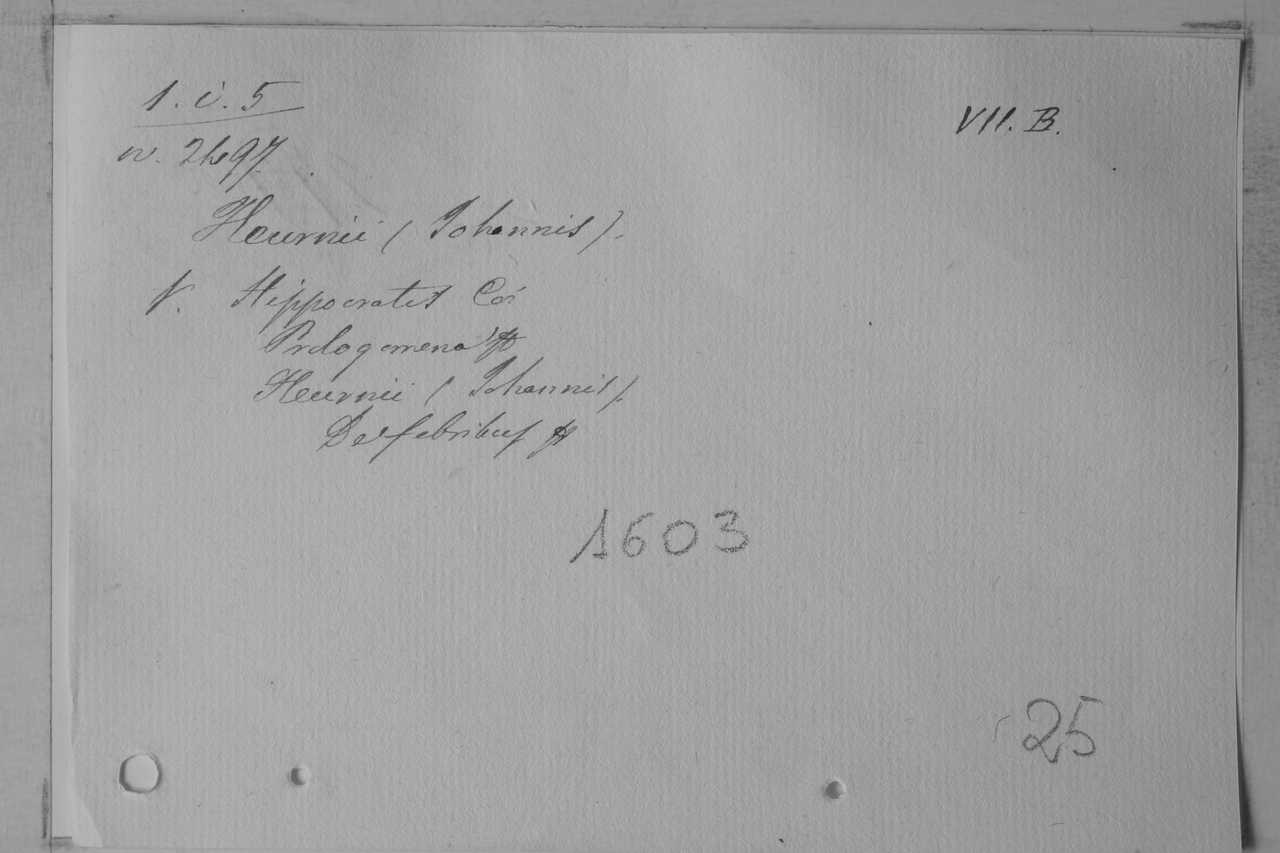 1. i. 5
VII. B.
n. 2697
Heurnii (Johannis).
V. Hippocratis Coi
Prologomena
Heurnii (Johannis).
De febribus
1603
25